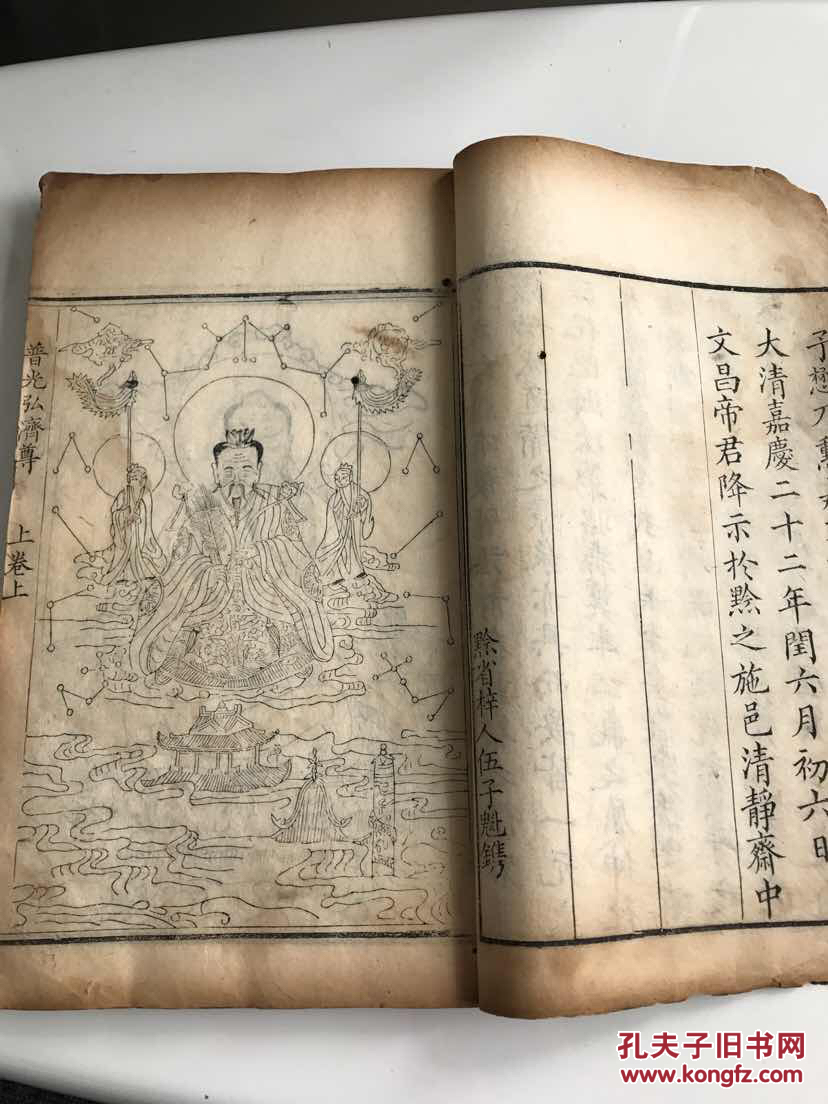 大清嘉慶二十二年閏六月初六日
文昌帝君降示於黔之施邑清靜齋中
黔省梓人伍子魁鐫
普光弘濟尊 上卷上
孔夫子旧书网
www.kongfz.com